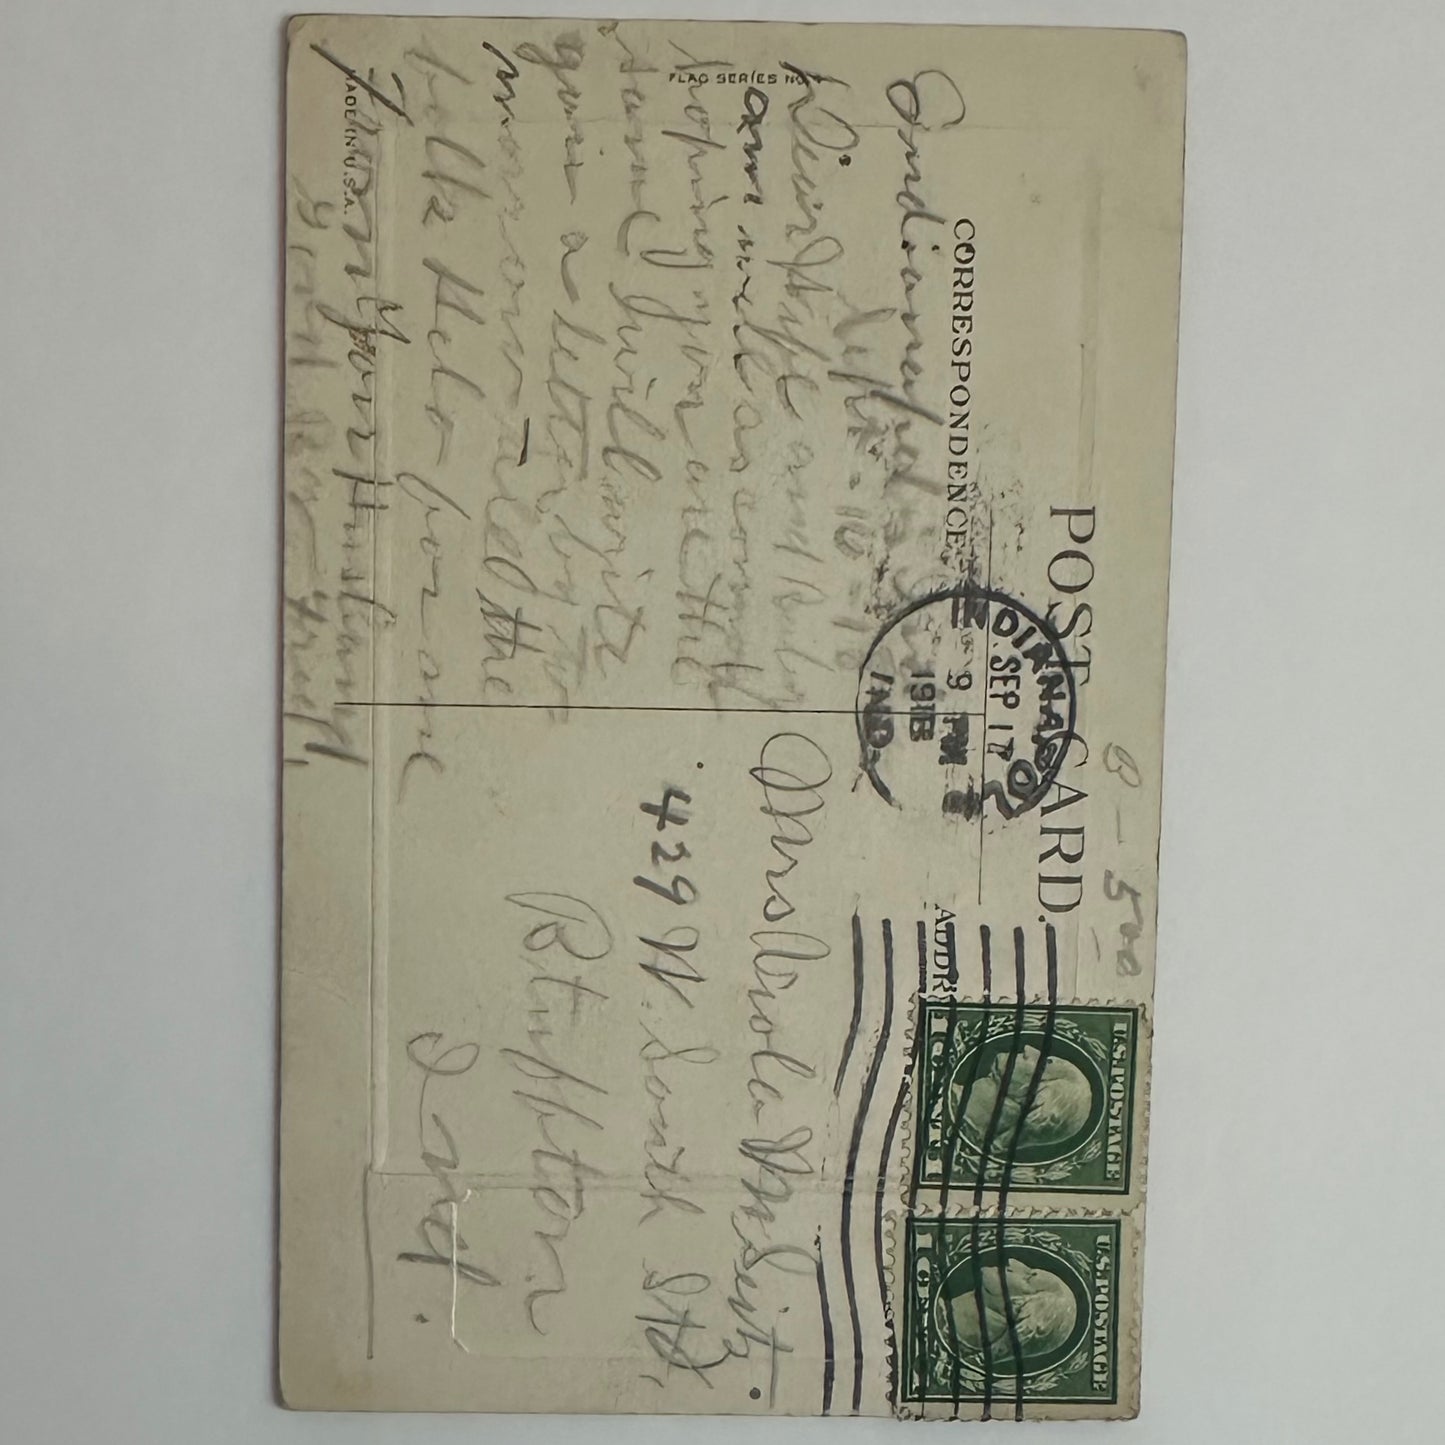 B-500
POST CARD.
CORRESPONDENCE
ADDR
FLAG SERIES NO.
MADE IN U.S.A.
DIANAPO
SEP 17
9 PM
1918
IND.
U.S. POSTAGE
1 CENT 1
U.S. POSTAGE
1 CENT 1
Indianapolis
Sept - 16 - 18
Dear Wife and Baby
am well as common
hoping you are the
same I will write
you a letter by to
morrow Tell the
folks Helo for me
From Your Husband
Mrs Viola M Seitz.
429 W. South Str,
Bluffton
Ind.